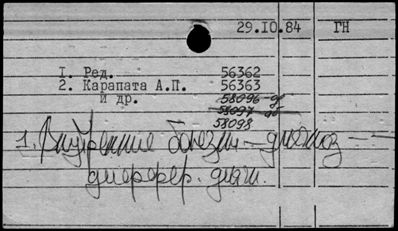 29.IO.84 ГН
I. Ред. 56362
2. Карапата А.П. 56363
и др. 58096-дб
58097-дб
58098
1. Внутренние болезни - диагноз -
диффер. диагн.